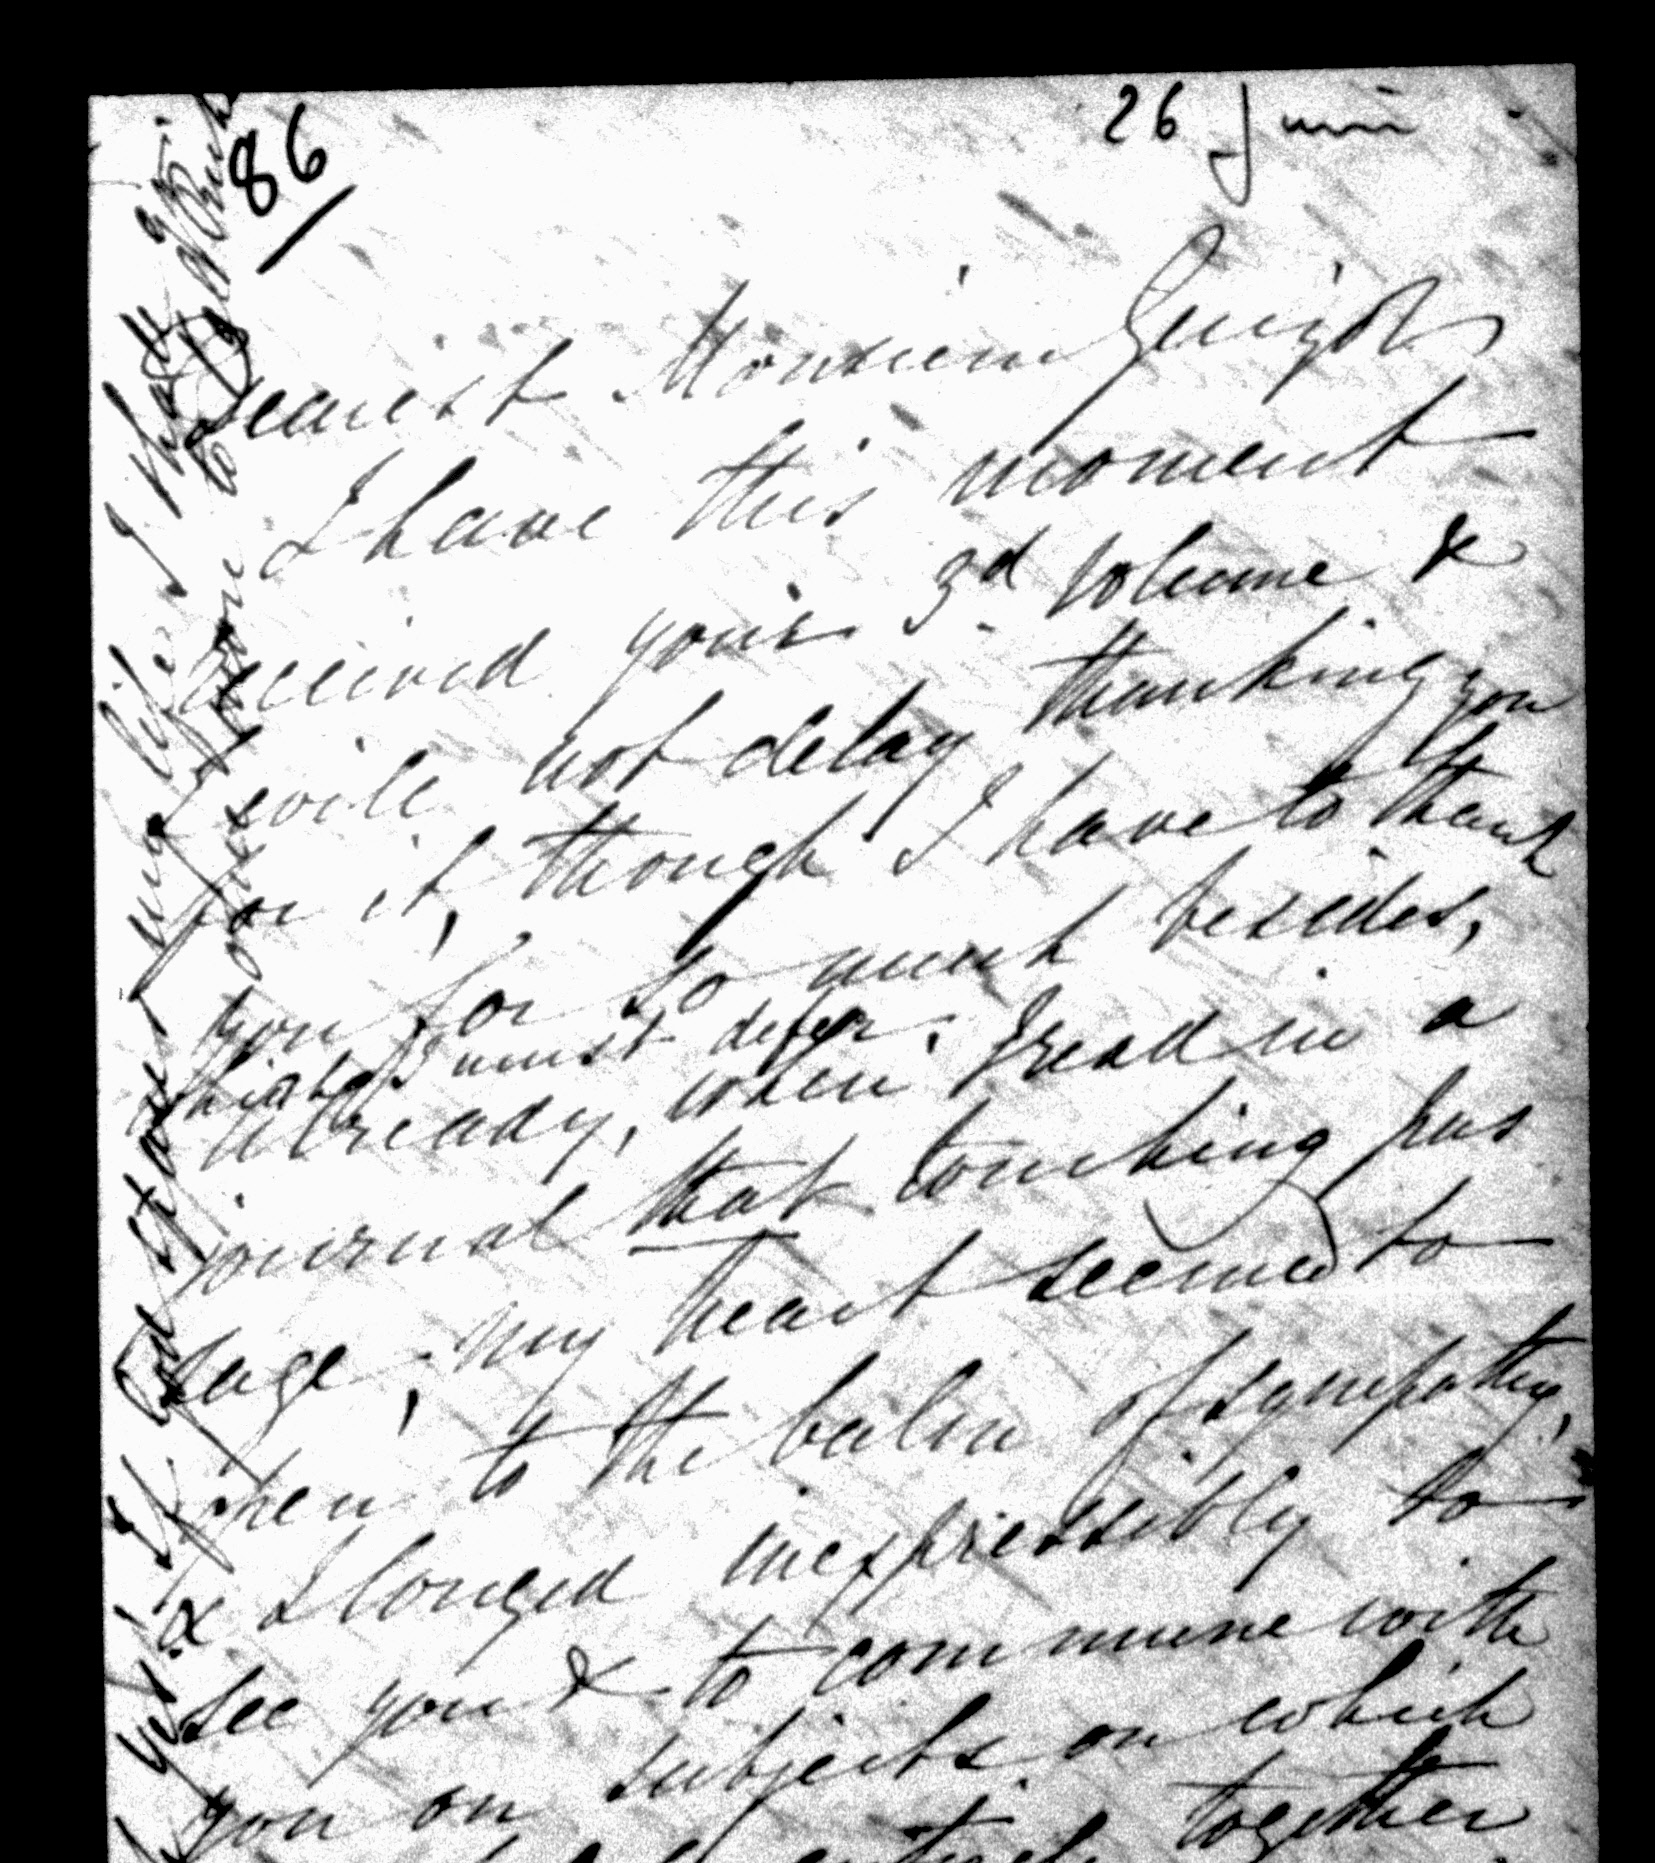 86
26 Juin
Dearest Monsieur Guizot
I have this moment
received your 3d volume &
will not delay thanking you
for it, though I have to thank
you for so much besides,
which I must defer.
Already, when I read in a
journal that touching pas
sage, my heart seemed to
open to the balm of sympathy,
& I longed inexpressibly to
see you & to commune with
you on subjects on which
entirely together
my life I